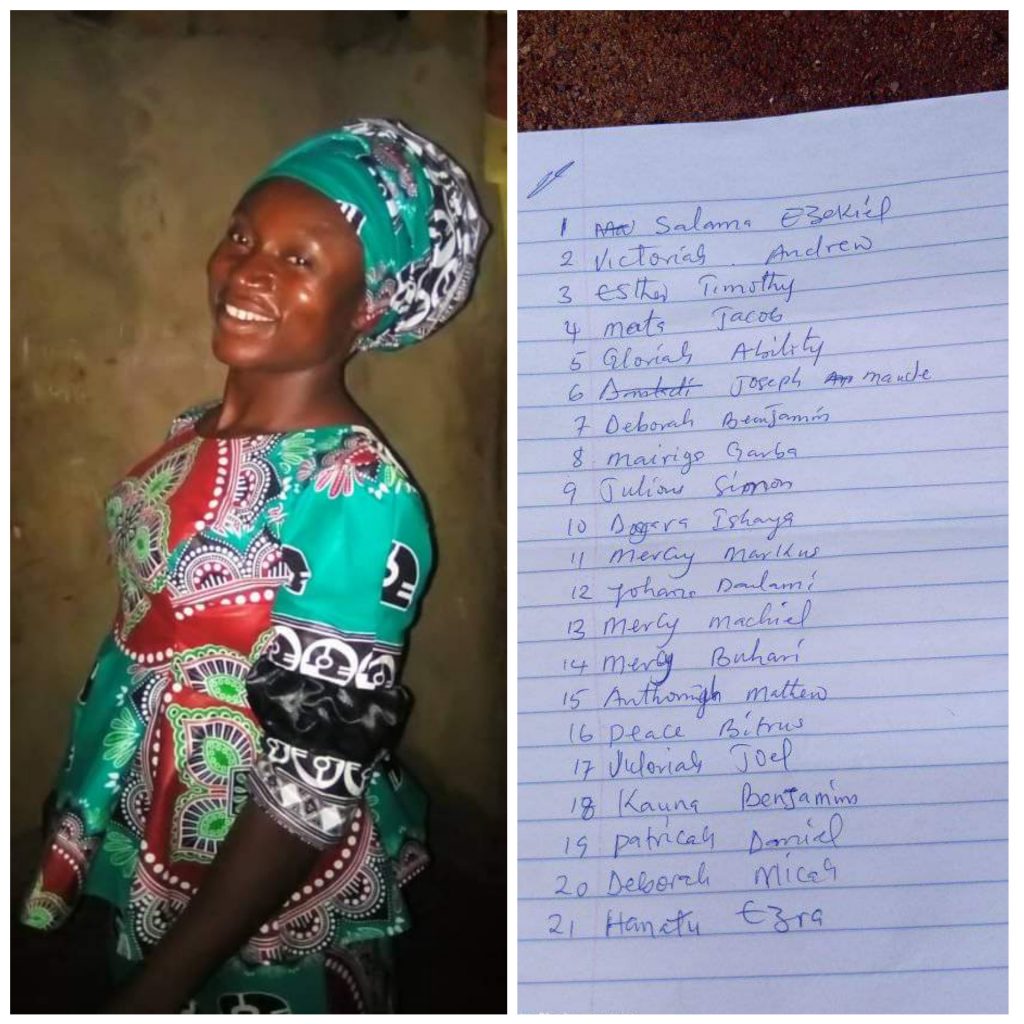 1 Salama Ezekiel
2 Victoriah. Andrew
3 Esther Timothy
4 meats Jacob
5 Gloriah Ability
6 Joseph maude
7 Deborah Benjamin
8 mairigo Garba
9 Julious Simon
10 Dogara Ishaya
11 mercy markus
12 Yohana Danlami
13 mercy machiel
14 mercy Buhari
15 mattew
16 peace Bitrus
17 Victoriah Joel
18 Kauna Benjamin
19 patricah Daniel
20 Deborah Micah
21 Hanatu Ezra